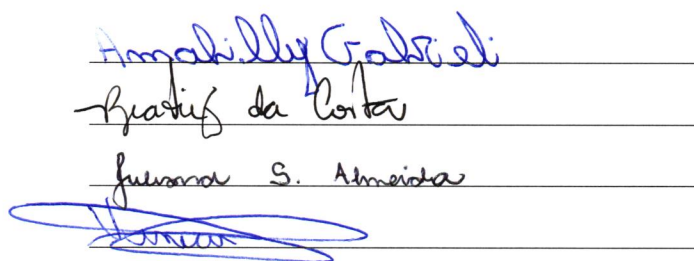 Amabilly Gabrieli
Beatriz da Costa
Juliana S. Almeida